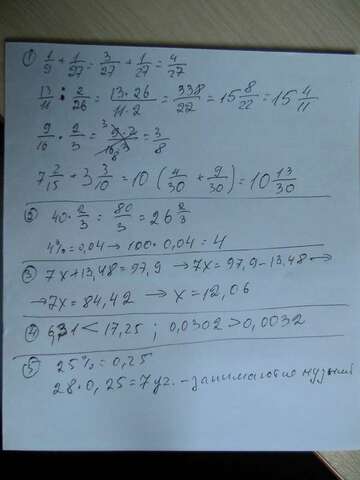 ① 1/9 + 1/27 = 3/27 + 1/27 = 4/27
13/11 : 2/26 = 13·26/11·2 = 338/22 = 15 8/22 = 15 4/11
9/10 · 2/3 = = 3/8
7 2/15 + 3 3/10 = 10 (4/30 + 9/30) = 10 13/30
② 40 · 2/3 = 80/3 = 26 2/3
4% = 0,04 → 100 · 0,04 = 4
③ 7x + 13,48 = 97,9 → 7x = 97,9 - 13,48 →
→ 7x = 84,42 → x = 12,06
④ < 17,25 ; 0,0302 > 0,0032
⑤ 25% = 0,25
28 · 0,25 = 7 уч. - занимаются музыкой